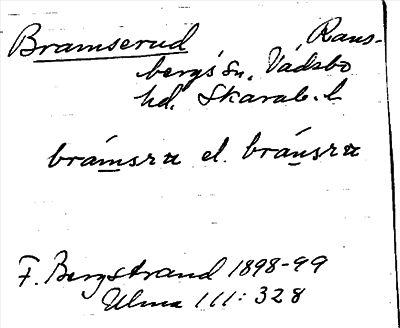 Bramserud Rans-
bergs sn. Vadsbo
hd. Skarab. l
brámsrɯ el. bráusrɯ
F. Bergstrand 1898-99
Ulma 111:328